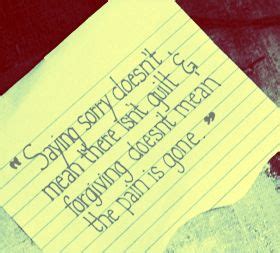 "Saying sorry doesn't
mean there isn't guilt &
forgiving doesn't mean
the pain is gone."